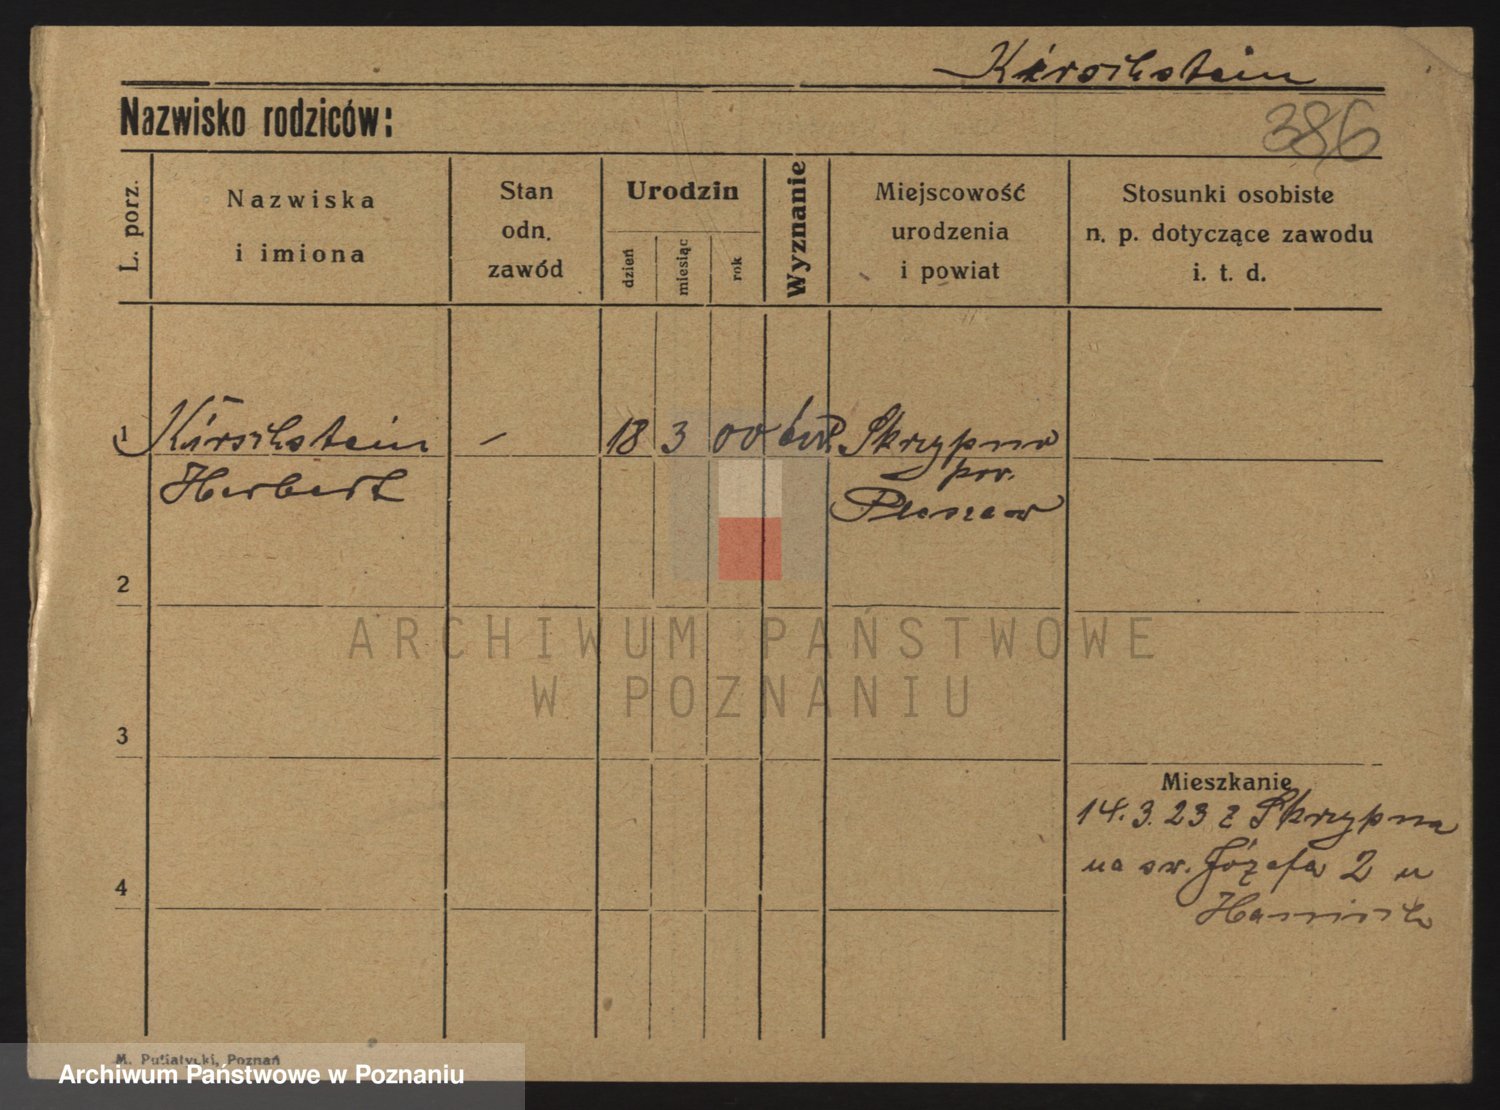 Kirschstein
Nazwisko rodziców:
386
L. porz.
Nazwiska
i imiona
Stan
odn.
zawód
Urodzin
dzień
miesiąc
rok
Wyznanie
Miejscowość
urodzenia
i powiat
Stosunki osobiste
n. p. dotyczące zawodu
i. t. d.
1 Kirschstein - 18 3 00 Skrypna
Herbert pow.
Pleszew
2
ARCHIWUM PAŃSTWOWE
W POZNANIU
3
Mieszkanie
14.3.23 z Skrypna
na św. Józefa 2 u
4
M. Putiatycki, Poznań
Archiwum Państwowe w Poznaniu